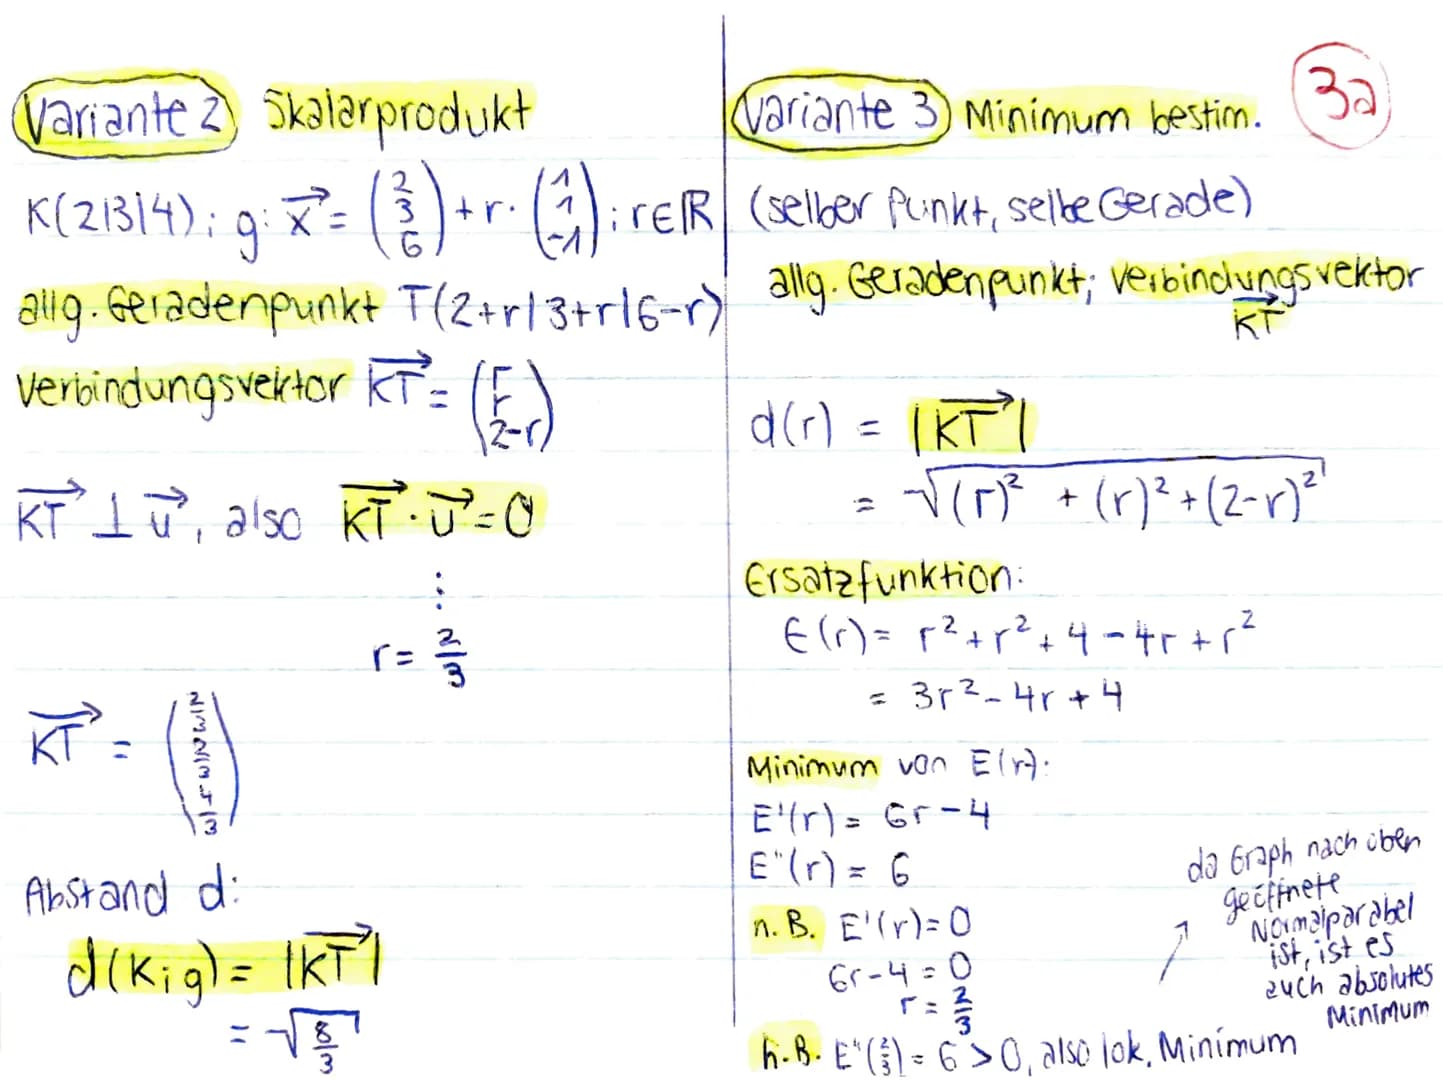 Variante 2 Skalarprodukt
K(2|3|4); g: x⃗ = (2 3 6) + r · (1 1 -1); r∈ℝ
allg. Geradenpunkt T(2+r|3+r|6-r)
Verbindungsvektor KT⃗ = (r r 2-r)
KT⃗ ⊥ u⃗, also KT⃗ · u⃗ = 0
⋮
r = 2/3
KT⃗ = (2/3 2/3 4/3)
Abstand d:
d(K;g) = |KT⃗|
= √(8/3)
Variante 3 Minimum bestim.
3a
(selber Punkt, selbe Gerade)
allg. Geradenpunkt; Verbindungsvektor
KT⃗
d(r) = |KT⃗|
= √((r)² + (r)² + (2-r)²)
Ersatzfunktion:
E(r) = r² + r² + 4 - 4r + r²
= 3r² - 4r + 4
Minimum von E(r):
E'(r) = 6r - 4
E''(r) = 6
n.B. E'(r) = 0
6r - 4 = 0
r = 2/3
h.B. E''(2/3) = 6 > 0, also lok. Minimum
da Graph nach oben
geöffnete
Normalparabel
ist, ist es
auch absolutes
Minimum